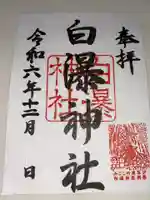 奉拝
白瀑神社
白瀑神社
令和六年十二月 日